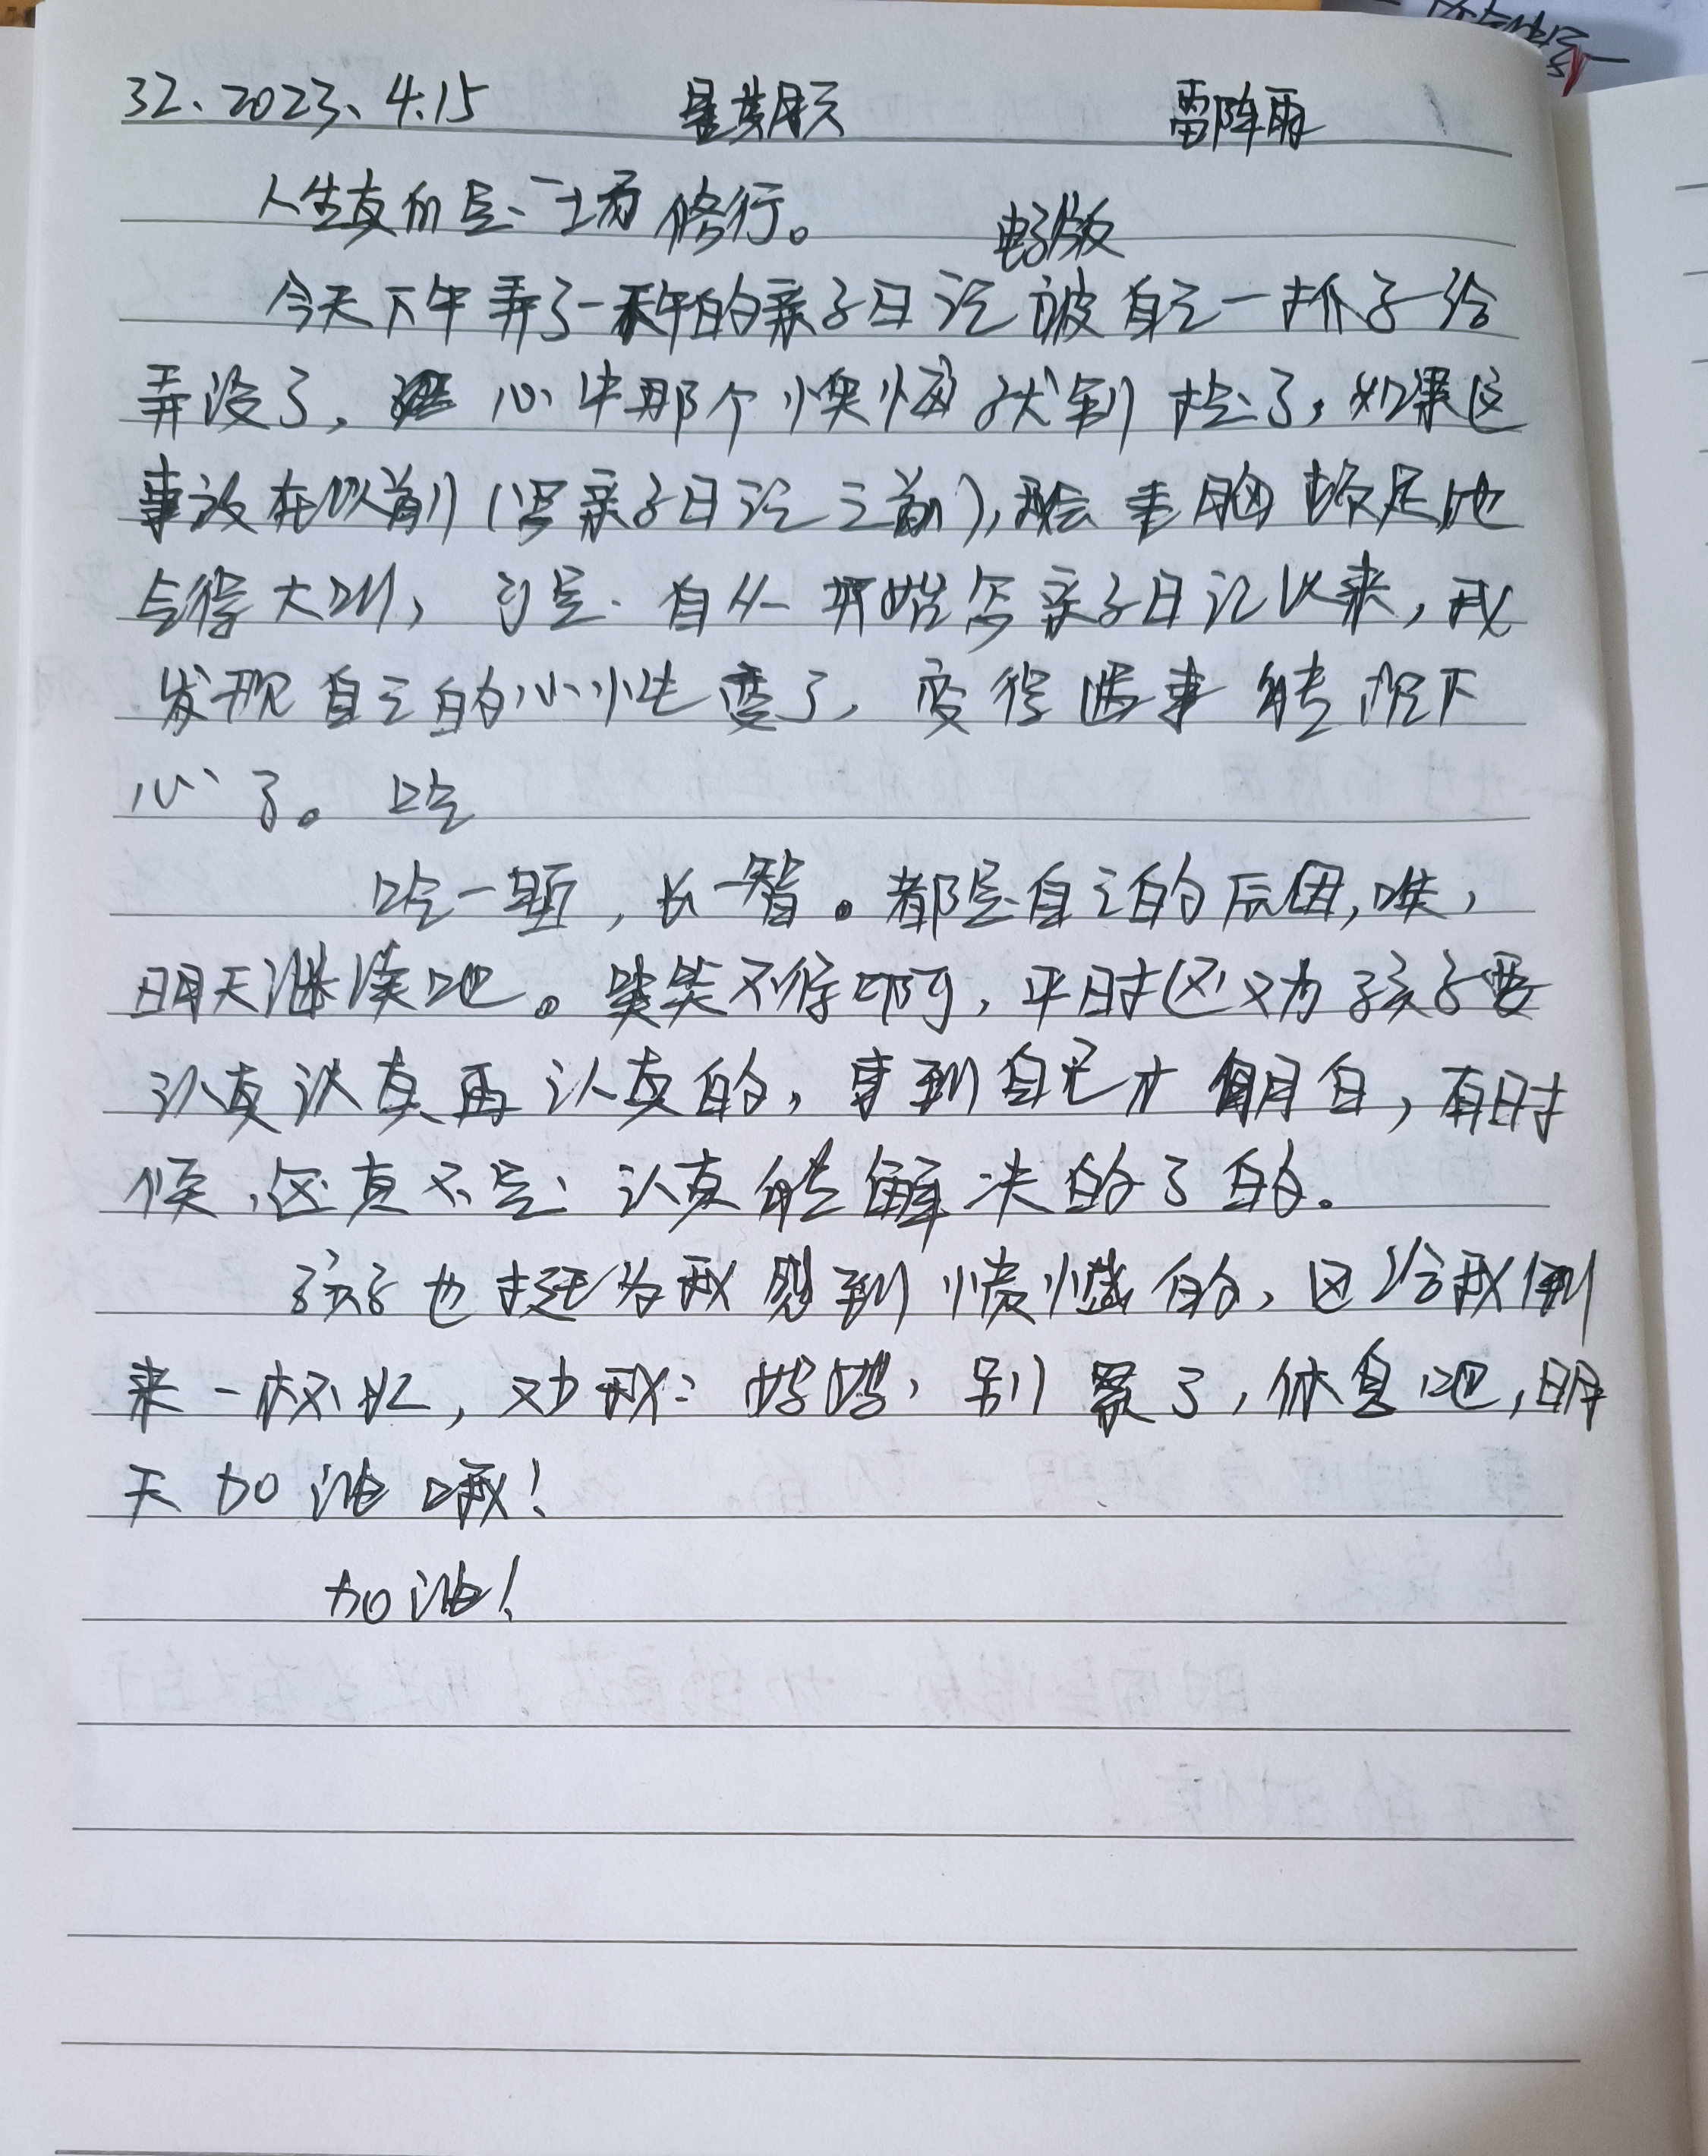 32、2023、4.15 星期天 雷阵雨
人生真的是一场修行。
电子版
今天下午弄了一下午的亲子日记被自己一下子给
弄没了，心中那个懊悔就到极了，如果这
事放在以前（写亲子日记之前），我会捶胸顿足地
大叫，可是自从开始写亲子日记以来，我
发现自己的心性变了，变得遇事能沉下
心了。吃
吃一堑，长一智。都是自己的原因，唉，
明天继续吧。哭笑不得啊，平时还又为孩子要
认真认真再认真的，事到自己才明白，有时
候，还真不是认真能解决的了的。
孩子也挺为我感到惋惜的，还给我倒
来一杯水，劝我：妈妈，别累了，休息吧，明
天加油哦！
加油！